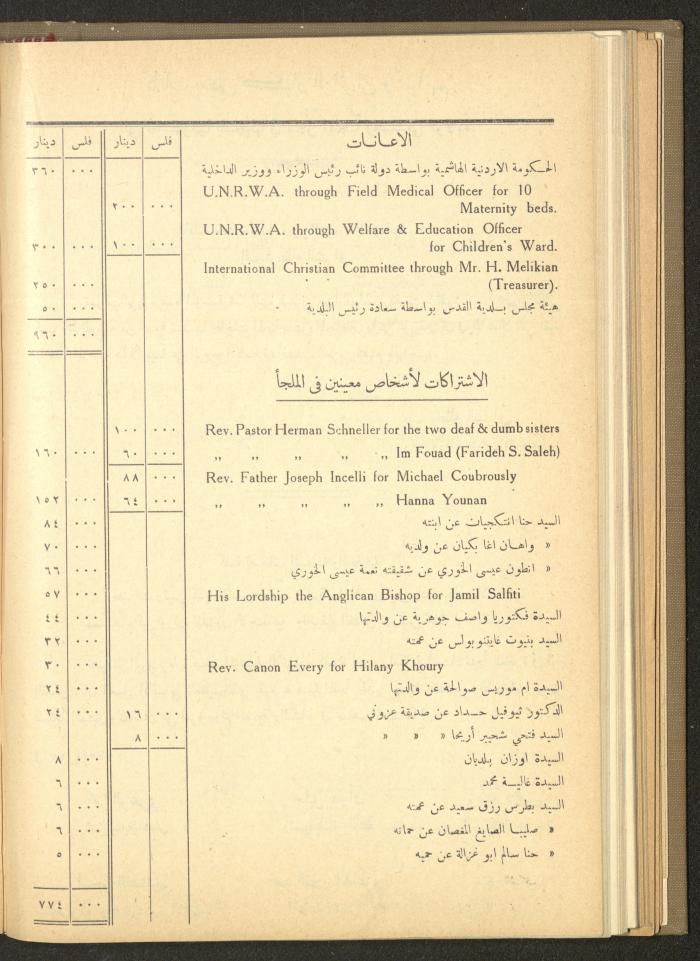 الاعانات فلس دينار فلس دينار
الحكومة الاردنية الهاشمية بواسطة دولة نائب رئيس الوزراء ووزير الداخلية ٠٠٠ ٣٦٠
U.N.R.W.A. through Field Medical Officer for 10
Maternity beds. ٠٠٠ ٢٠٠
U.N.R.W.A. through Welfare & Education Officer
for Children's Ward. ٠٠٠ ١٠٠ ٠٠٠ ٣٠٠
International Christian Committee through Mr. H. Melikian
(Treasurer). ٠٠٠ ٢٥٠
هيئة مجلس بلدية القدس بواسطة سعادة رئيس البلدية ٠٠٠ ٥٠
٠٠٠ ٩٦٠
الاشتراكات لأشخاص معينين في الملجأ
Rev. Pastor Herman Schneller for the two deaf & dumb sisters ٠٠٠ ١٠٠
,, ,, ,, ,, ,, Im Fouad (Farideh S. Saleh) ٠٠٠ ٦٠ ٠٠٠ ١٦٠
Rev. Father Joseph Incelli for Michael Coubrously ٠٠٠ ٨٨
,, ,, ,, ,, ,, Hanna Younan ٠٠٠ ٦٤ ٠٠٠ ١٥٢
السيد حنا انتكجيات عن ابنته ٠٠٠ ٨٤
« واهان اغا بكيان عن ولديه ٠٠٠ ٧٠
« انطون عيسى الخوري عن شقيقته نعمة عيسى الخوري ٠٠٠ ٦٦
His Lordship the Anglican Bishop for Jamil Salfiti ٠٠٠ ٥٧
السيدة فكتوريا واصف جوهرية عن والدتها ٠٠٠ ٤٤
السيد بنيوت غايتنوبولس عن عمته ٠٠٠ ٣٢
Rev. Canon Every for Hilany Khoury ٠٠٠ ٣٠
السيدة ام موريس صوالحة عن والدتها ٠٠٠ ٢٤
الدكتور ثيوفيل حداد عن صديقة عزوني ٠٠٠ ١٦ ٠٠٠ ٢٤
السيد فتحي شحيبر أريحا « « « ٠٠٠ ٨
السيدة اوزان بلديان ٠٠٠ ٨
السيدة غالية محمد ٠٠٠ ٦
السيد بطرس رزق سعيد عن عمته ٠٠٠ ٦
« صليبا الصايغ المغصان عن حماته ٠٠٠ ٦
« حنا سالم ابو غزالة عن حميه ٠٠٠ ٥
٠٠٠ ٧٧٤